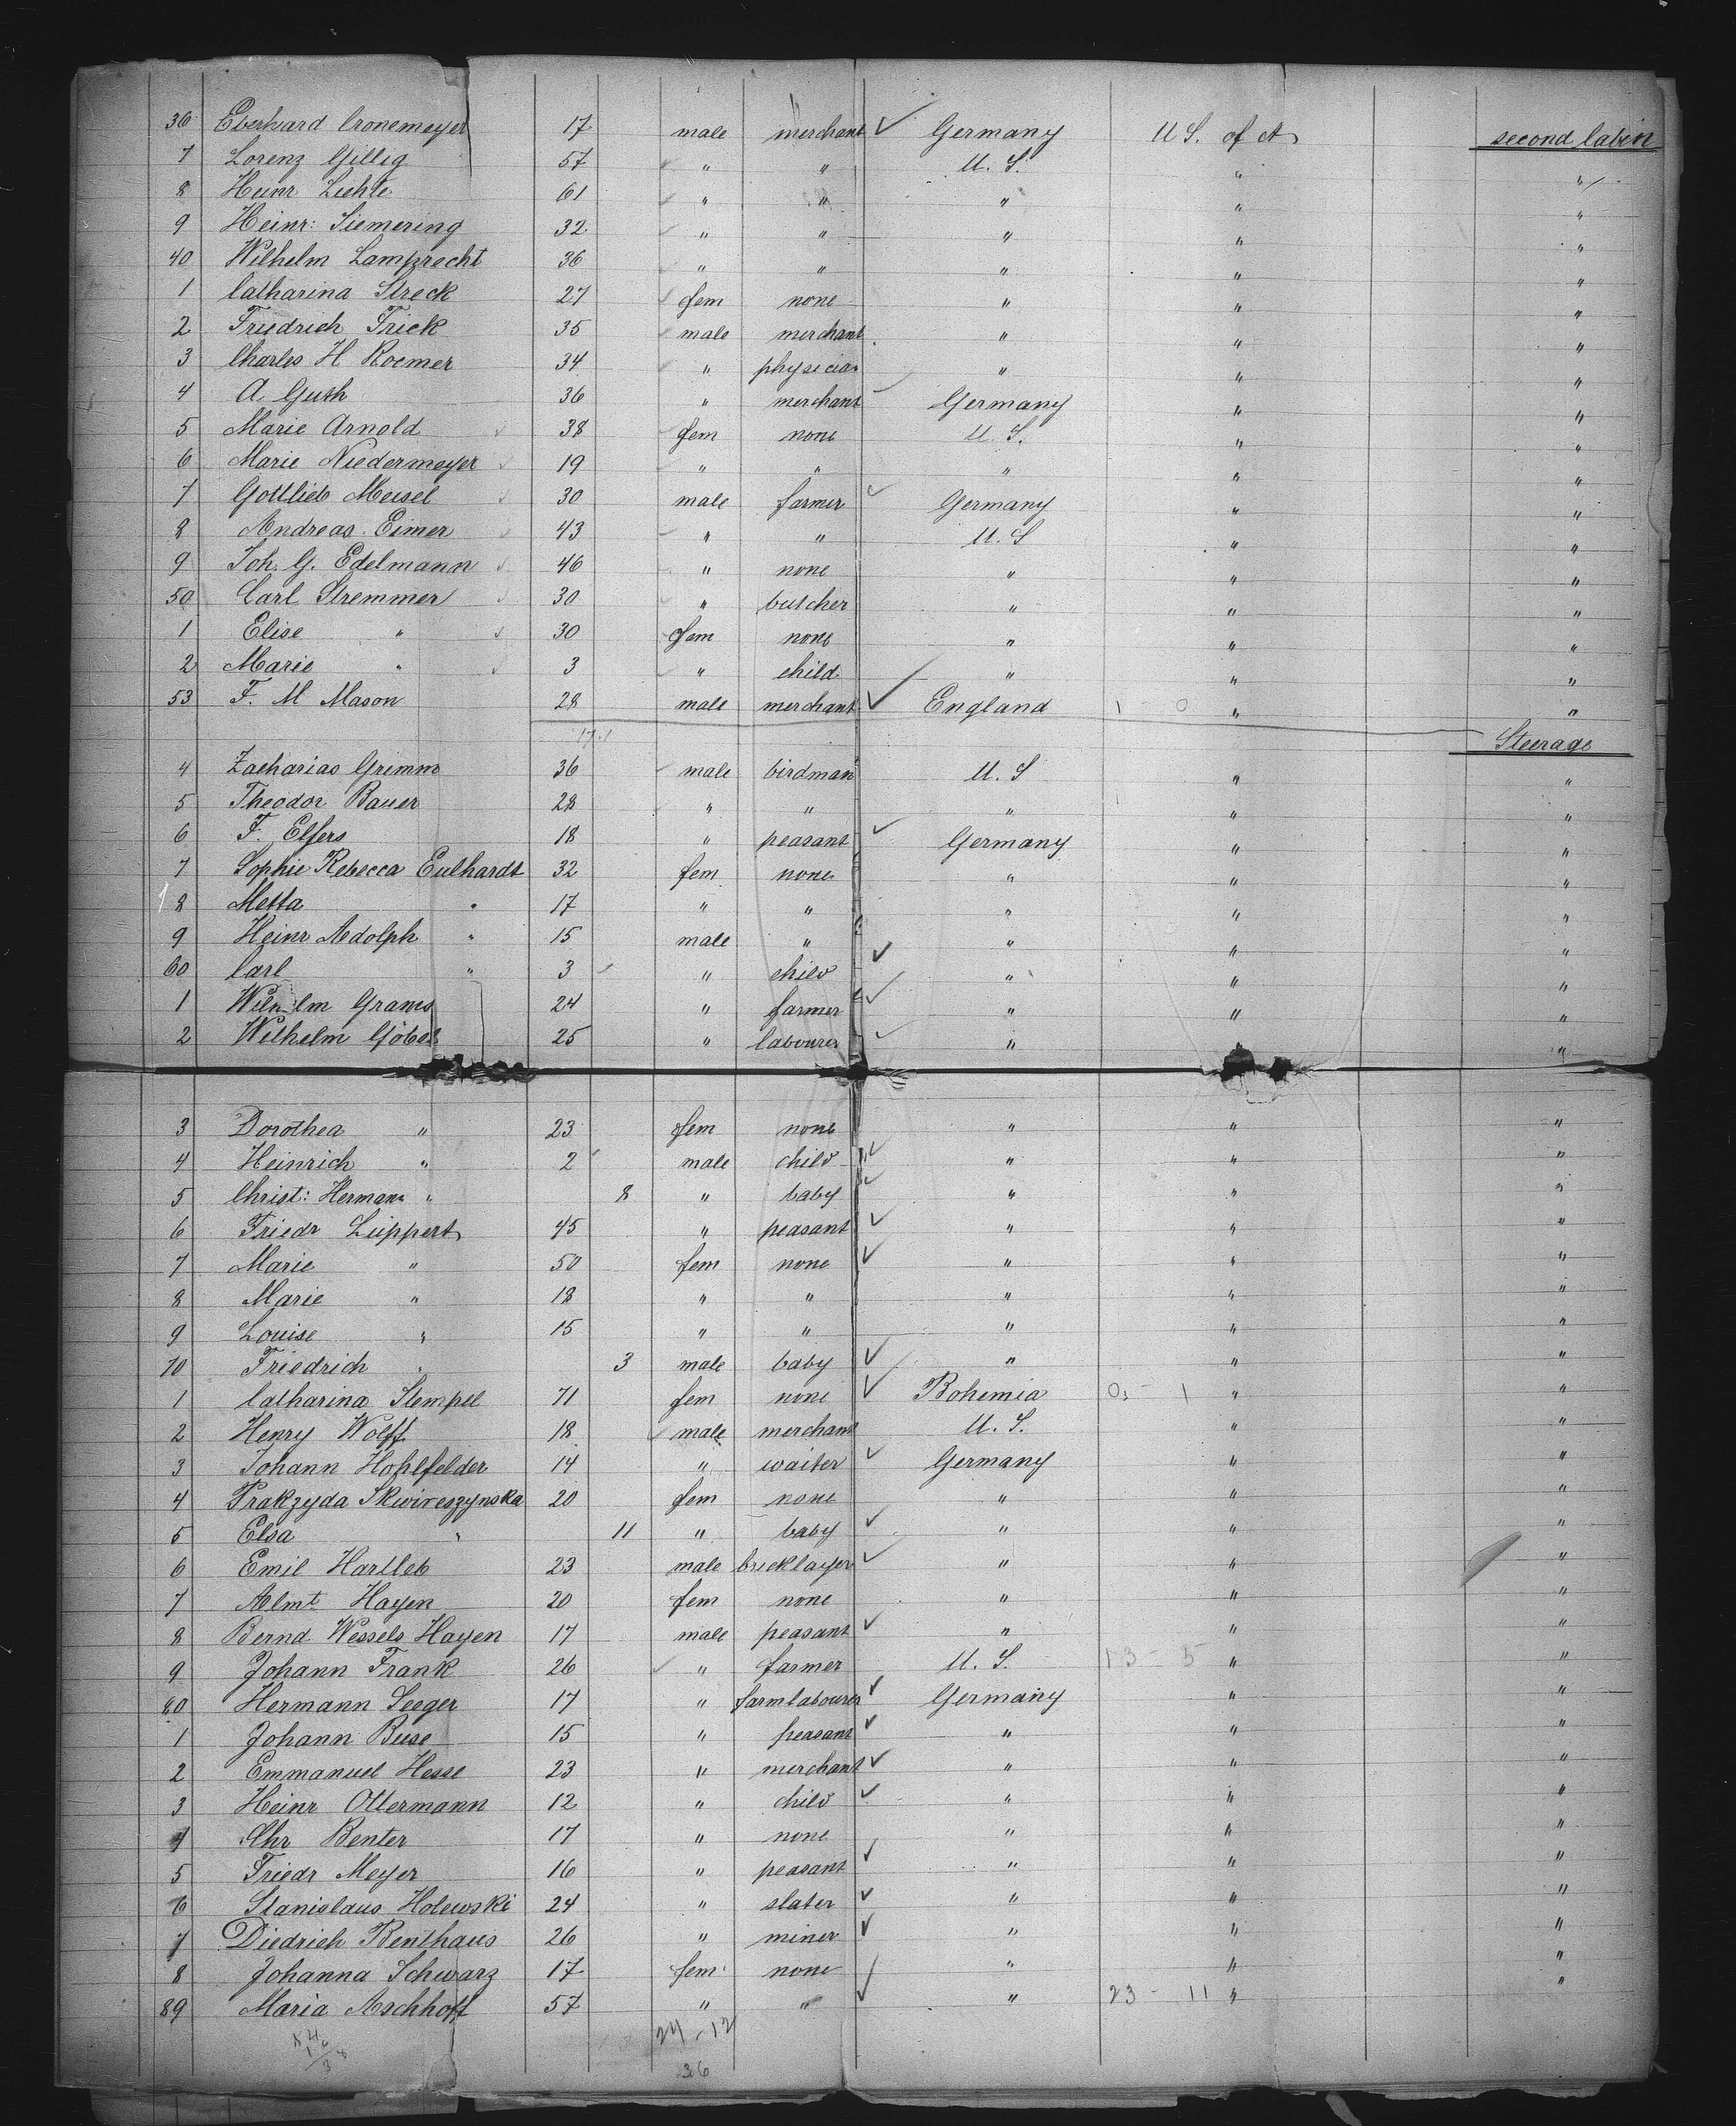 36 Eberhard Cronemeyer 17 male merchant ✓ Germany U S. of A second Cabin
7 Lorenz Gillig 57 " " U. S. " "
8 Heinr Liehte 61 " " " " "
9 Heinr: Siemering 32 " " " " "
40 Wilhelm Lamprecht 36 " " " " "
1 Catharina Streck 27 fem none " " "
2 Friedrich Frick 35 male merchant " " "
3 Charles H Roemer 34 " physician " " "
4 A Guth 36 " merchant Germany " "
5 Marie Arnold 38 fem none U. S. " "
6 Marie Niedermeyer 19 " " " " "
7 Gottlieb Meisel 30 male farmer ✓ Germany " "
8 Andreas Eimer 43 " " U. S " "
9 Joh. G. Edelmann 46 " none " " "
50 Carl Stremmer 30 " butcher " " "
1 Elise " 30 fem none " " "
2 Marie " 3 " child " " "
53 F. M Mason 28 male merchant ✓ England 1 0 " "
Steerage
4 Zacharias Grimm 36 male birdman U. S " "
5 Theodor Bauer 28 " " " " "
6 F. Elfers 18 " peasant ✓ Germany " "
7 Sophie Rebecca Eulhardt 32 fem none " " "
8 Metta " 17 " " " " "
9 Heinr Aedolph " 15 male " ✓ " " "
60 Carl " 3 " child ✓ " " "
1 Wilhelm Grams 24 " farmer ✓ " " "
2 Wilhelm Göbel 25 " labourer ✓ " " "
3 Dorothea " 23 fem none " " "
4 Heinrich " 2 male child ✓ " " "
5 Christ: Hermann " 8 " baby ✓ " " "
6 Friedr Lüppert 45 " peasant ✓ " " "
7 Marie " 50 fem none ✓ " " "
8 Marie " 18 " " " " "
9 Louise " 15 " " " " "
70 Friedrich " 3 male baby ✓ " " "
1 Catharina Stempel 71 fem none ✓ Bohemia 0 - 1 " "
2 Henry Wolff 18 male merchant U. S. " "
3 Johann Hohlfelder 14 " waiter ✓ Germany " "
4 Prakzyda Skwireszynska 20 fem none " " "
5 Elsa " 11 " baby ✓ " " "
6 Emil Hartleb 23 male bricklayer ✓ " " "
7 Almt Hayen 20 fem none " " "
8 Bernd Wessels Hayen 17 male peasant ✓ " " "
9 Johann Frank 26 " farmer U. S. 13 5 " "
80 Hermann Seeger 17 " farmlabourer ✓ Germany " "
1 Johann Buse 15 " peasant ✓ " " "
2 Emmanuel Hesse 23 " merchant ✓ " " "
3 Heinr Ottermann 12 " child ✓ " " "
4 Chr Benter 17 " none " " "
5 Friedr Meyer 16 " peasant ✓ " " "
6 Stanislaus Holewski 24 " slater ✓ " " "
7 Diedrich Benthaus 26 " miner ✓ " " "
8 Johanna Schwarz 17 fem none " " "
89 Maria Aschhoff 57 " " ✓ " 23 - 11 " "
24 - 12
36